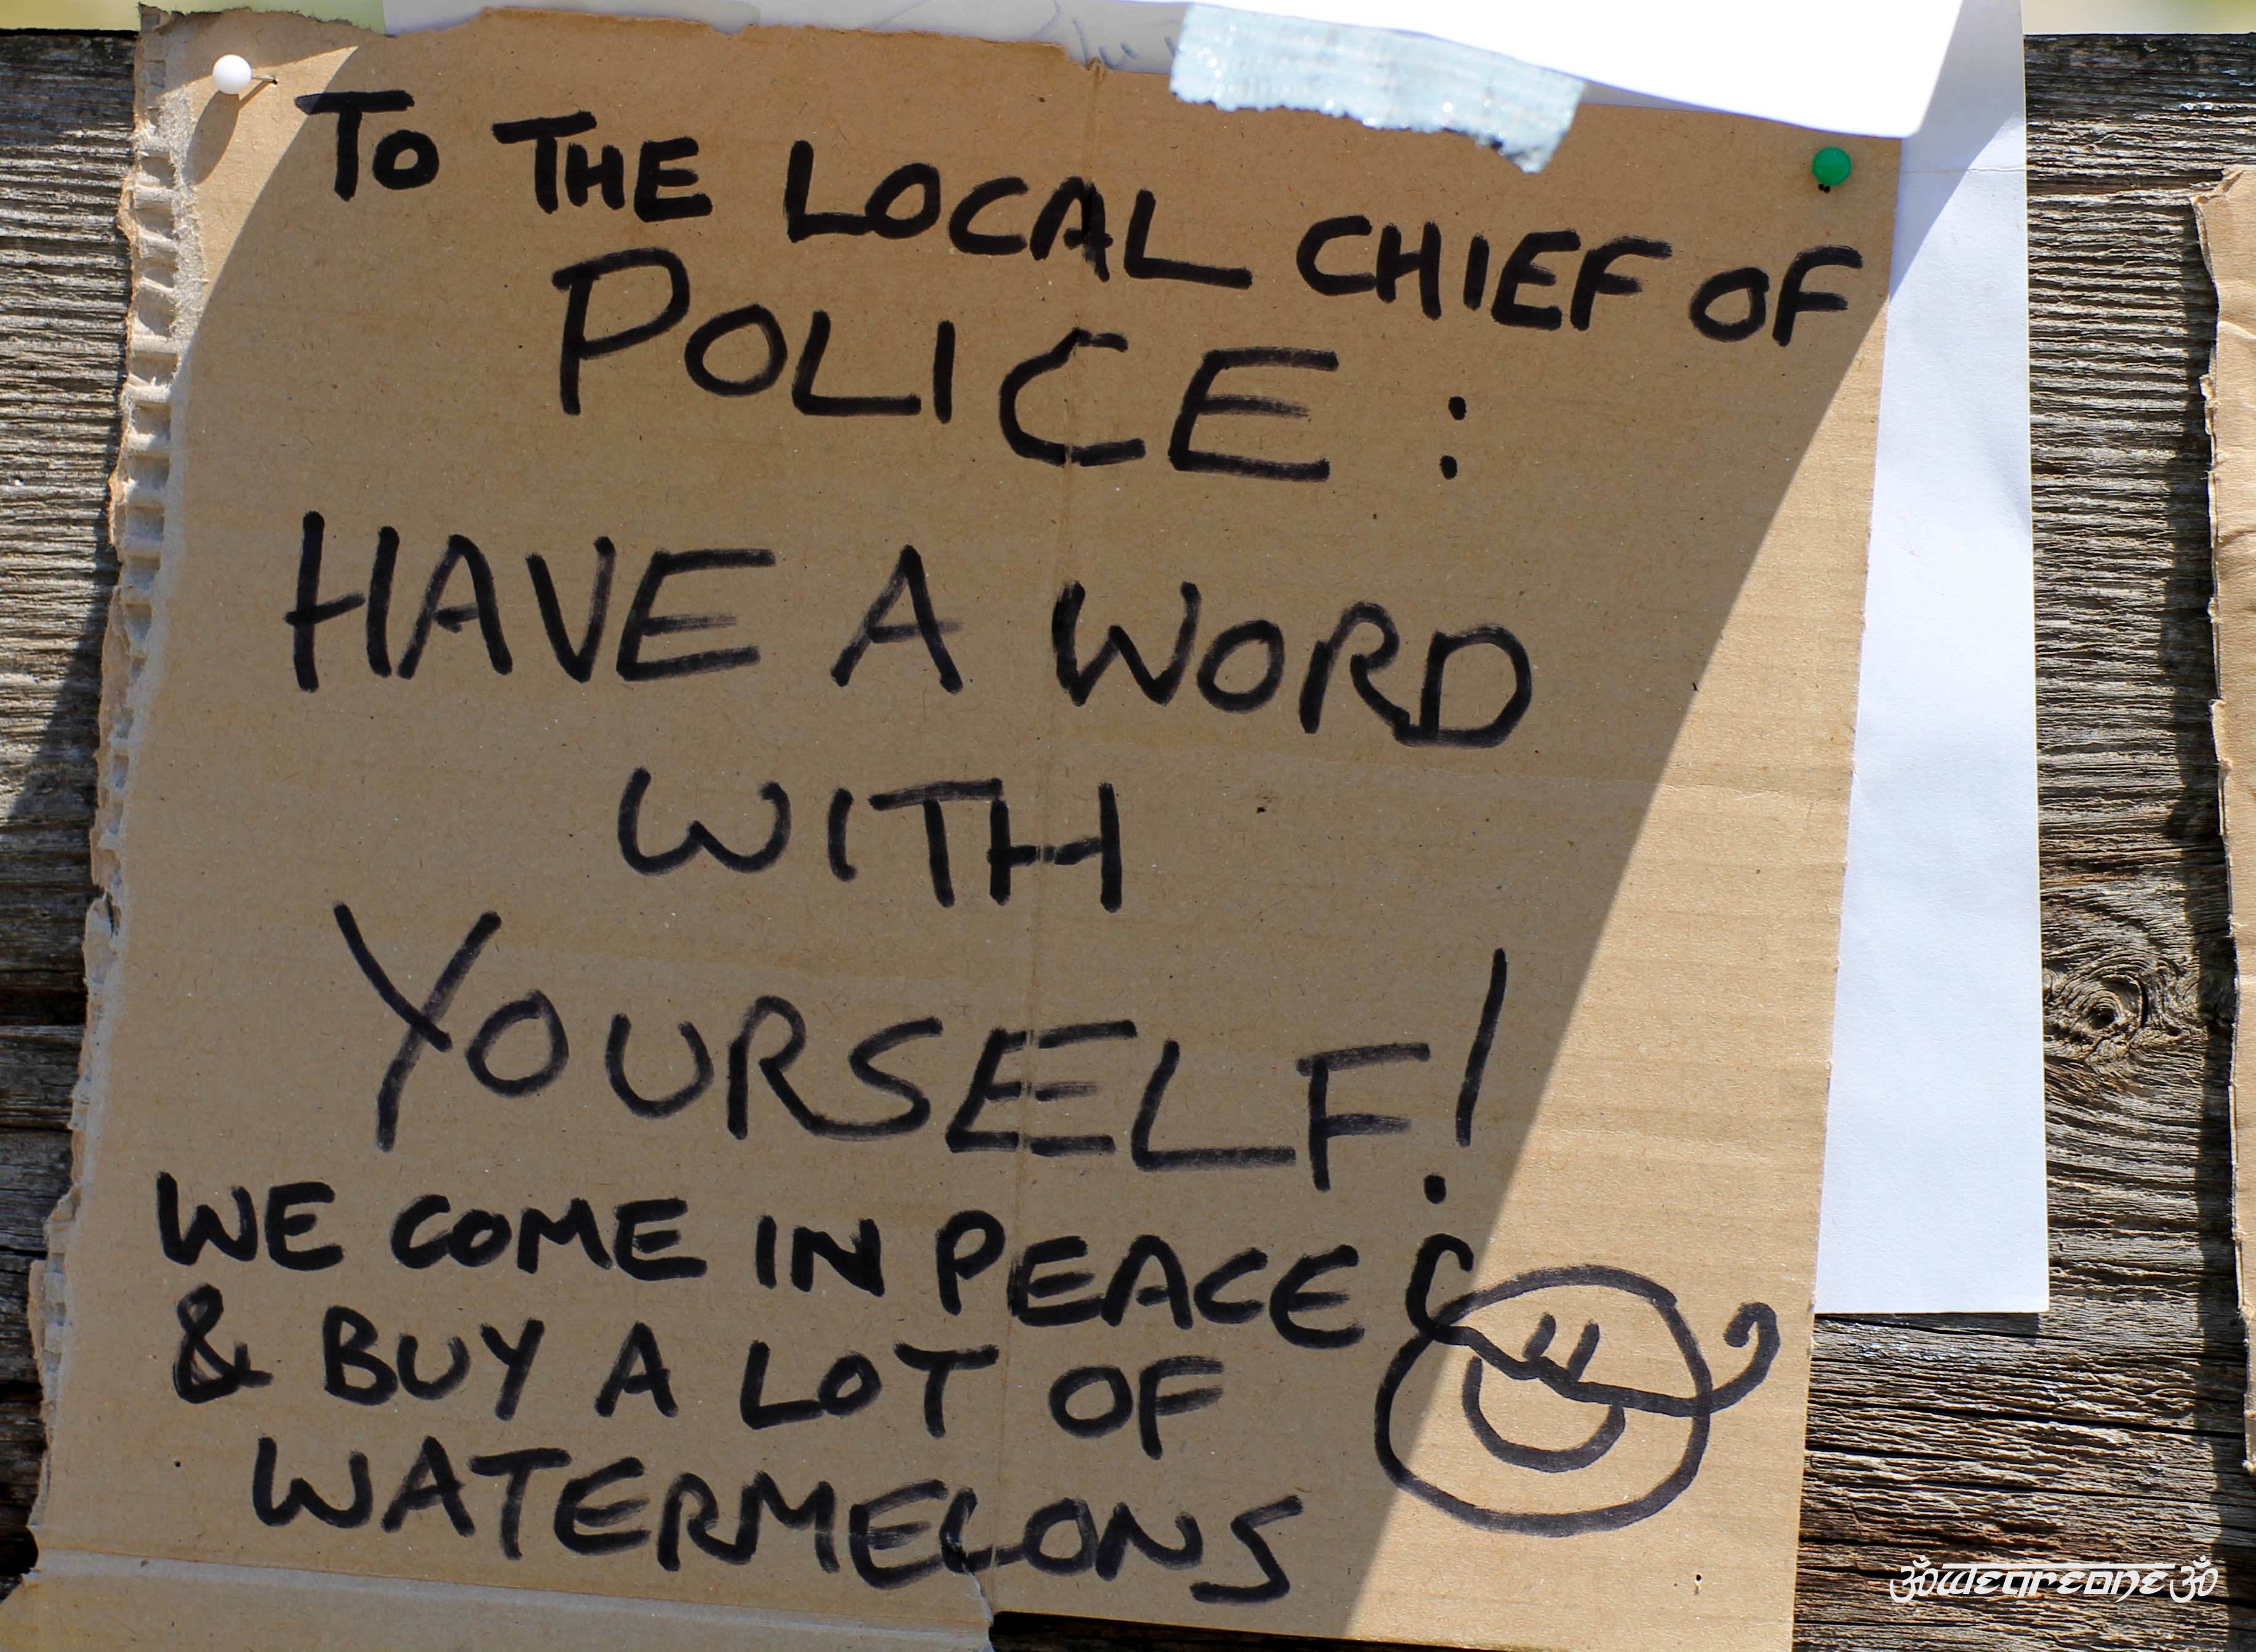 TO THE LOCAL CHIEF OF
POLICE:
HAVE A WORD
WITH
YOURSELF!
WE COME IN PEACE
& BUY A LOT OF
WATERMELONS
ॐWEAREONEॐ